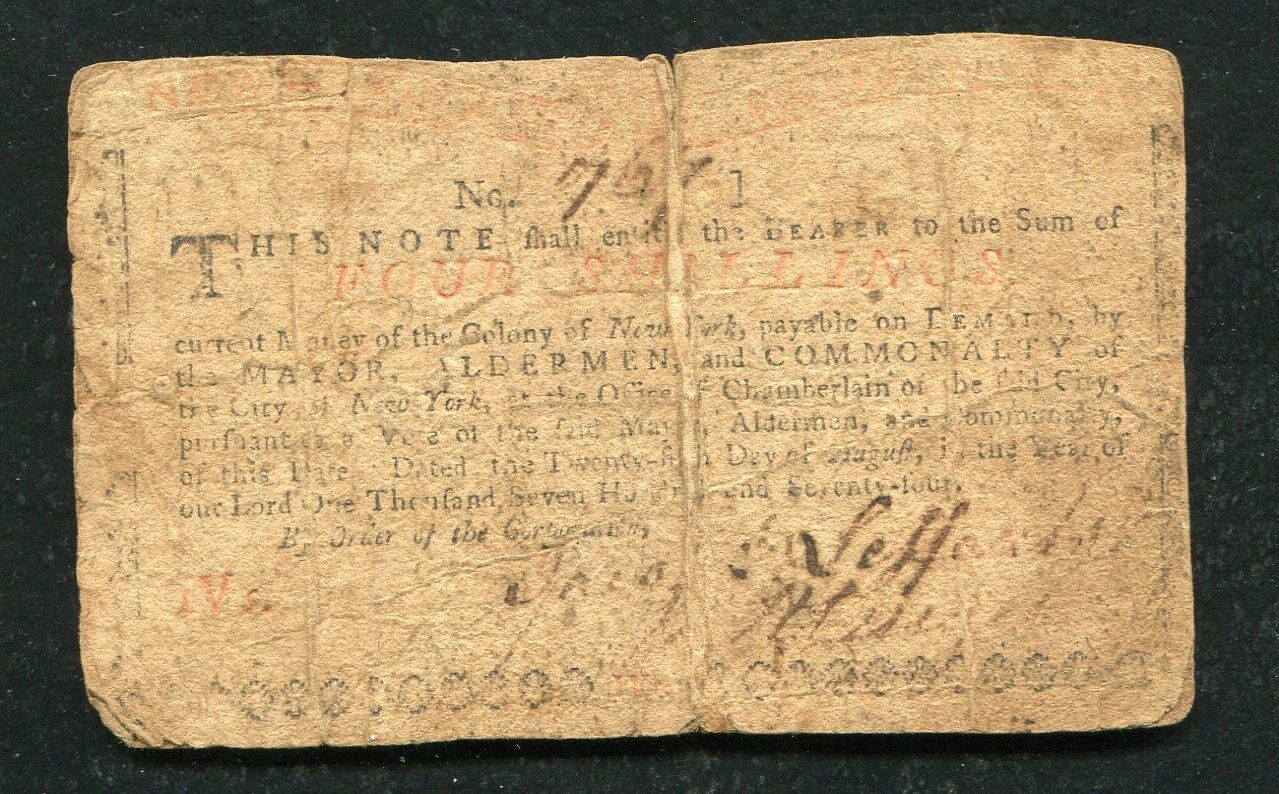 No. ]
THIS NOTE shall entitle the BEARER to the Sum of
FOUR SHILLINGS
current Money of the Colony of New York, payable on DEMAND, by
the MAYOR, ALDERMEN, and COMMONALTY of
the City of New York, at the Office of Chamberlain of the said City,
pursuant to a Vote of the said Mayor, Aldermen, and Commonalty,
of this Date. Dated the Twenty-fifth Day of August, in the Year of
our Lord One Thousand Seven Hundred and Seventy-four.
By Order of the Corporation,
IVs.
IVs.